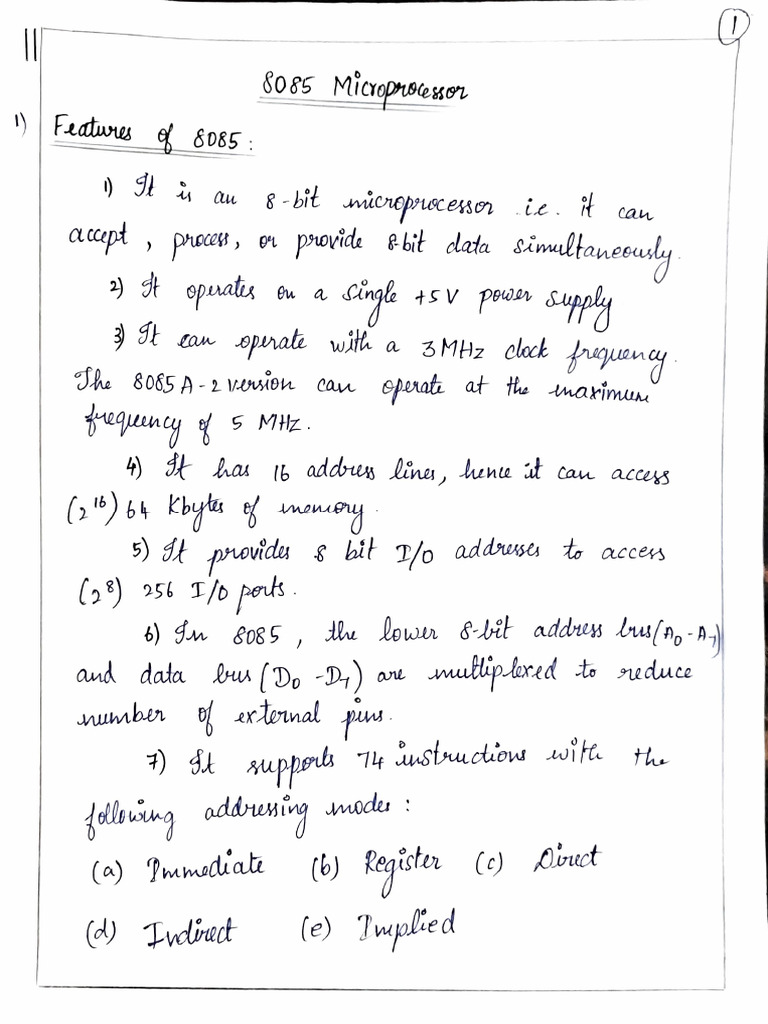 1
11
8085 Microprocessor
1) Features of 8085 :
1) It is an 8-bit microprocessor i.e. it can
accept , process, or provide 8-bit data simultaneously.
2) It operates on a single +5V power supply
3) It can operate with a 3 MHz clock frequency.
The 8085 A - 2 version can operate at the maximum
frequency of 5 MHz.
4) It has 16 address lines, hence it can access
(2¹⁶) 64 Kbytes of memory.
5) It provides 8 bit I/O addresses to access
(2⁸) 256 I/O ports.
6) In 8085 , the lower 8-bit address bus (A₀ - A₇)
and data bus (D₀ - D₇) are multiplexed to reduce
number of external pins.
7) It supports 74 instructions with the
following addressing modes :
(a) Immediate (b) Register (c) Direct
(d) Indirect (e) Implied